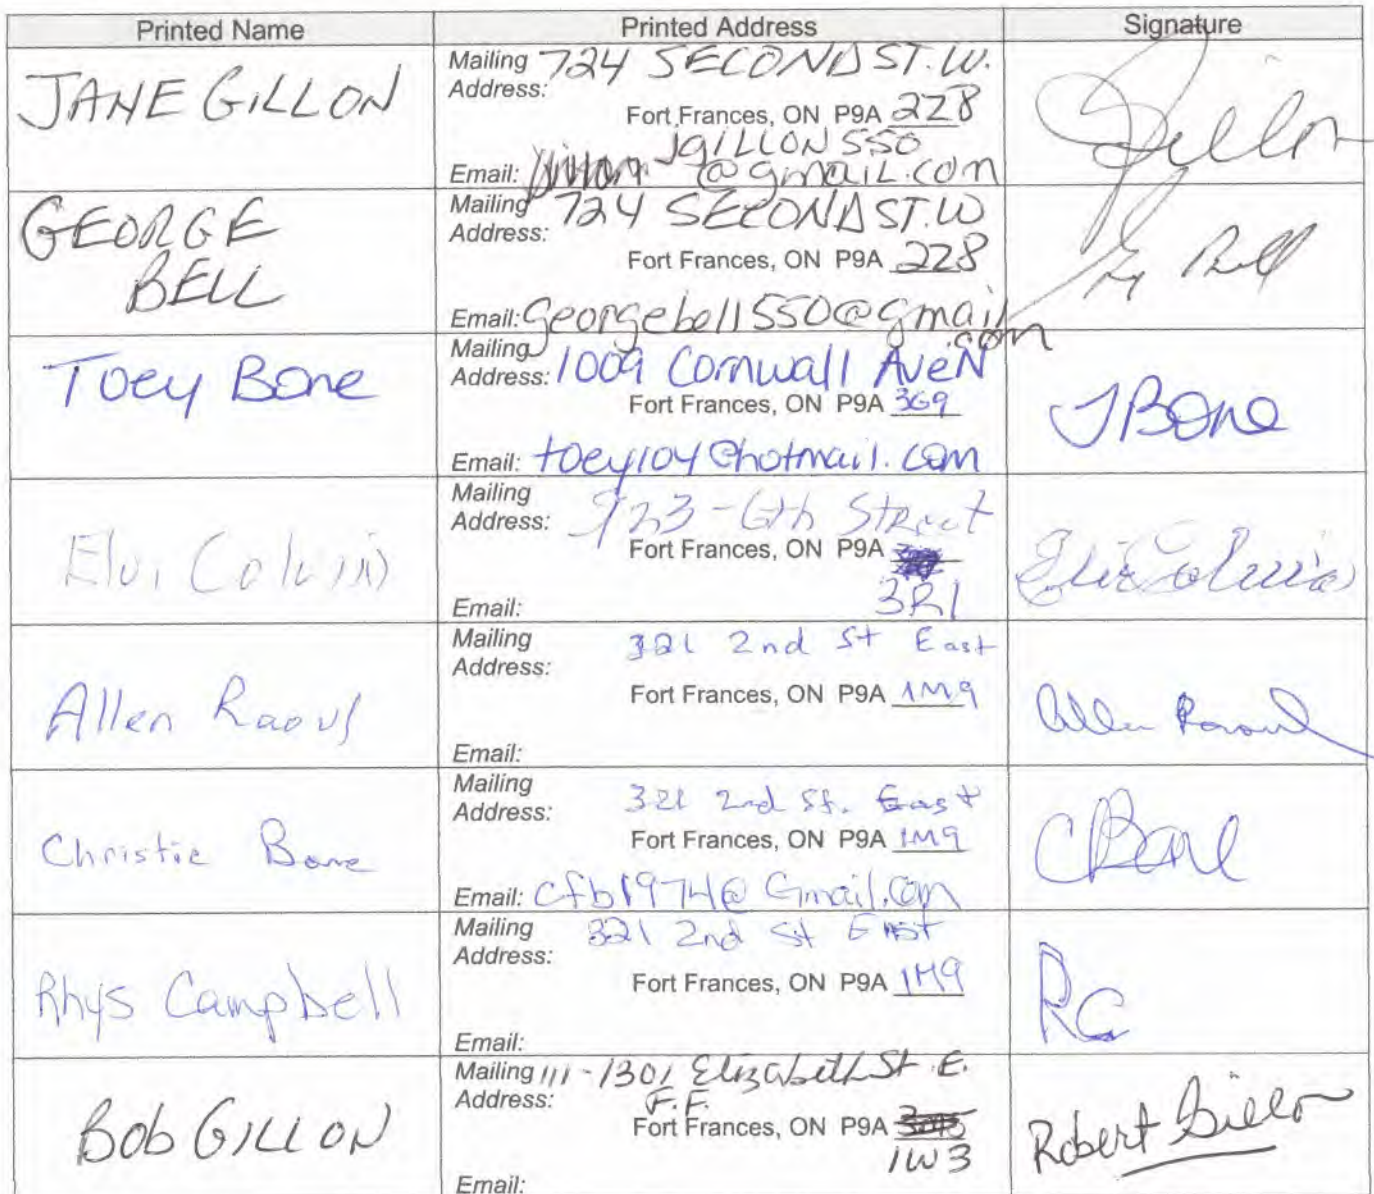 Printed Name Printed Address Signature
JANE GILLON
Mailing Address: 724 SECOND ST. W.
Fort Frances, ON P9A 2Z8
jgillon550
Email: @gmail.com
Gillon
GEORGE
BELL
Mailing Address: 724 SECOND ST. W
Fort Frances, ON P9A 2Z8
Email: georgebell550@gmail.com
Bell
Toey Bone
Mailing Address: 1009 Cornwall Ave N
Fort Frances, ON P9A 3G9
Email: toey104@hotmail.com
JBone
Elvi Colvin
Mailing Address: 923-6th Street
Fort Frances, ON P9A
3R1
Email:
Allen Raoul
Mailing Address: 321 2nd St East
Fort Frances, ON P9A 1M9
Email:
Allen Raoul
Christie Bone
Mailing Address: 321 2nd St. East
Fort Frances, ON P9A 1M9
Email: cfb1974@Gmail.com
CBone
Rhys Campbell
Mailing Address: 321 2nd St East
Fort Frances, ON P9A 1M9
Email:
RC
Bob GILLON
Mailing Address: 111-1301 Elizabeth St. E.
F.F.
Fort Frances, ON P9A
1W3
Email:
Robert Gillon